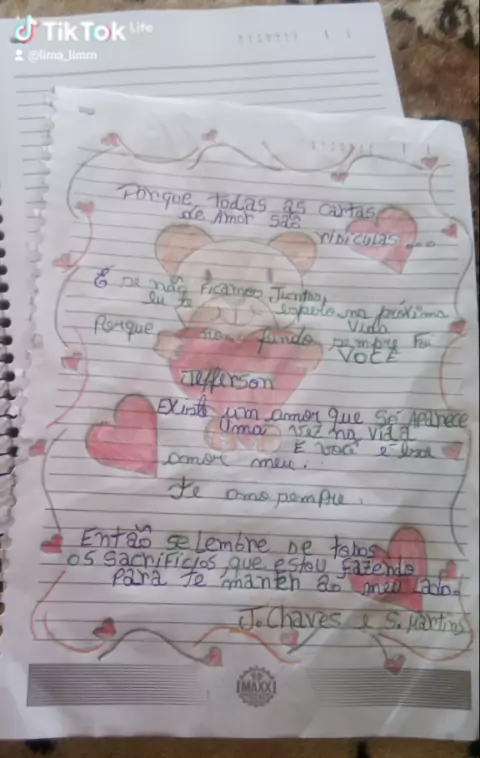 TikTok Life
@lima_limm
Porque todas as cartas
de Amor são
ridiculas...
E se não Ficamos Juntos,
eu te espero na próxima
vida
Porque no fundo sempre Foi
VOCÊ
Jefferson
Existe um amor que só Aparece
Uma vez na vida
E você é esse
amor meu.
te amo sempre.
Então se Lembre de todos
os sacrifícios que estou fazendo
para te manter ao meu lado.
J. Chaves e S. Martins
MAXX